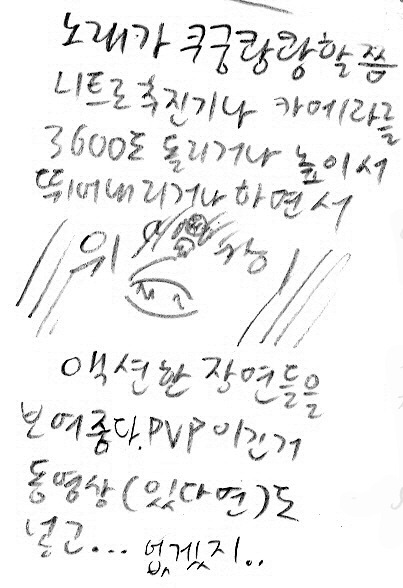 노래가 쿠궁쾅쾅할쯤
니트로축진기나 카메라를
3600도 돌리거나 높이서
뛰어내리거나 하면서
위 창
액션한 장면들을
보여준다. PVP 이긴거
동영상(있다면)도
넣고... 없겠지..